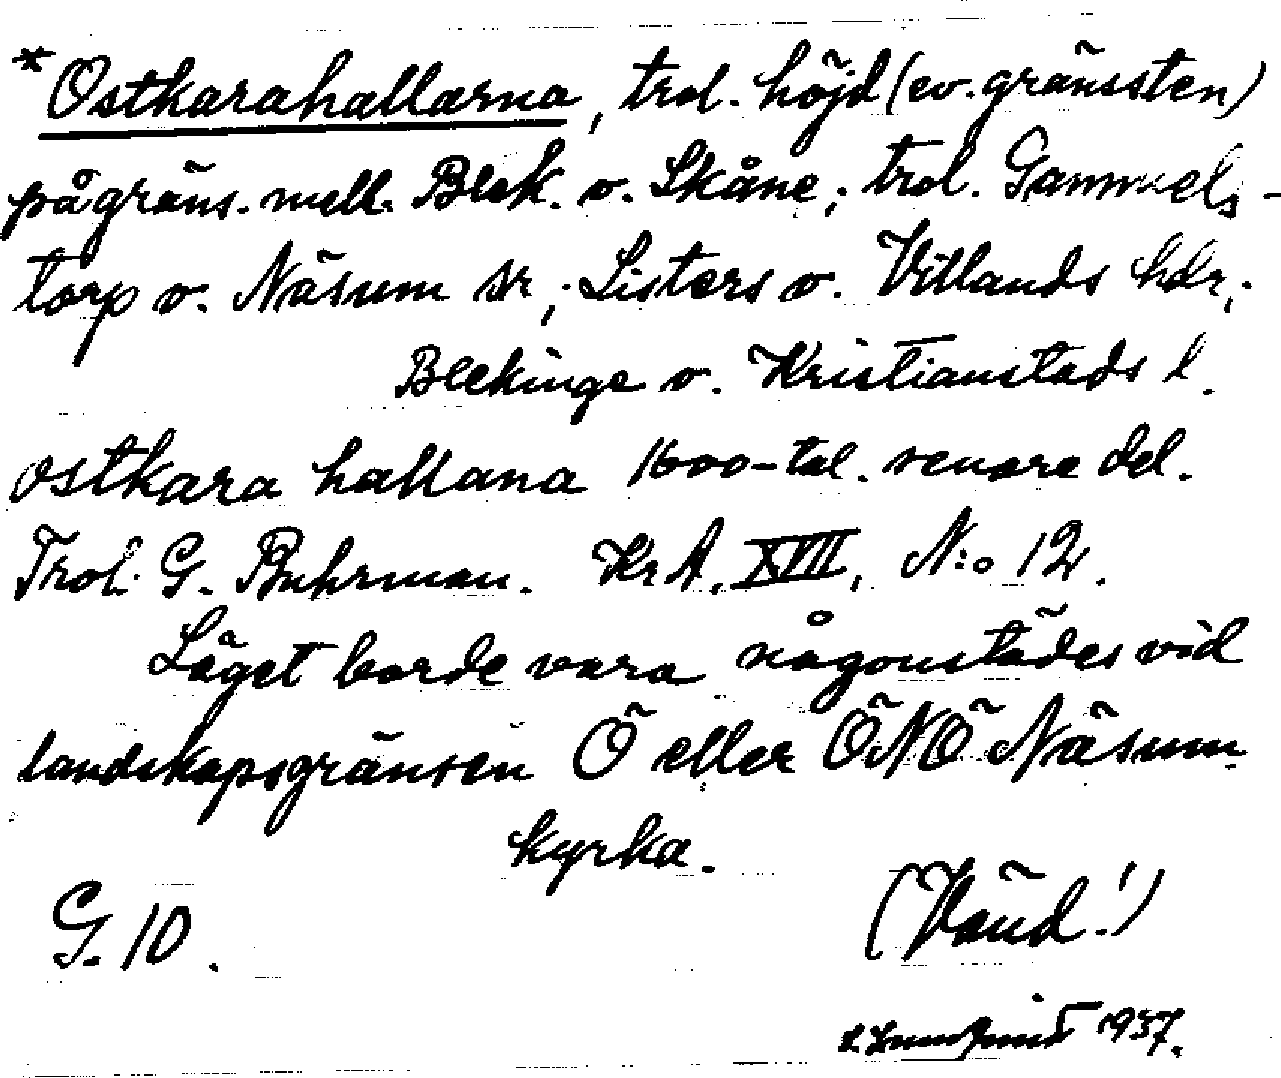 *Ostkarahallarna, trol. höjd (ev. gränssten)
på gräns. mell. Blek. o. Skåne; trol. Gammels-
torp o. Näsum sr; Listers o. Villands hdr;
Blekinge o. Kristianstads l.
ostkara hallana 1600-tal. senare del.
Trol. G. Buhrman. KrA. XVII, N:o 12.
Läget borde vara någonstädes vid
landskapsgränsen Ö eller ÖNÖ Näsum
kyrka.
G. 10.
(Vänd!)
1937.